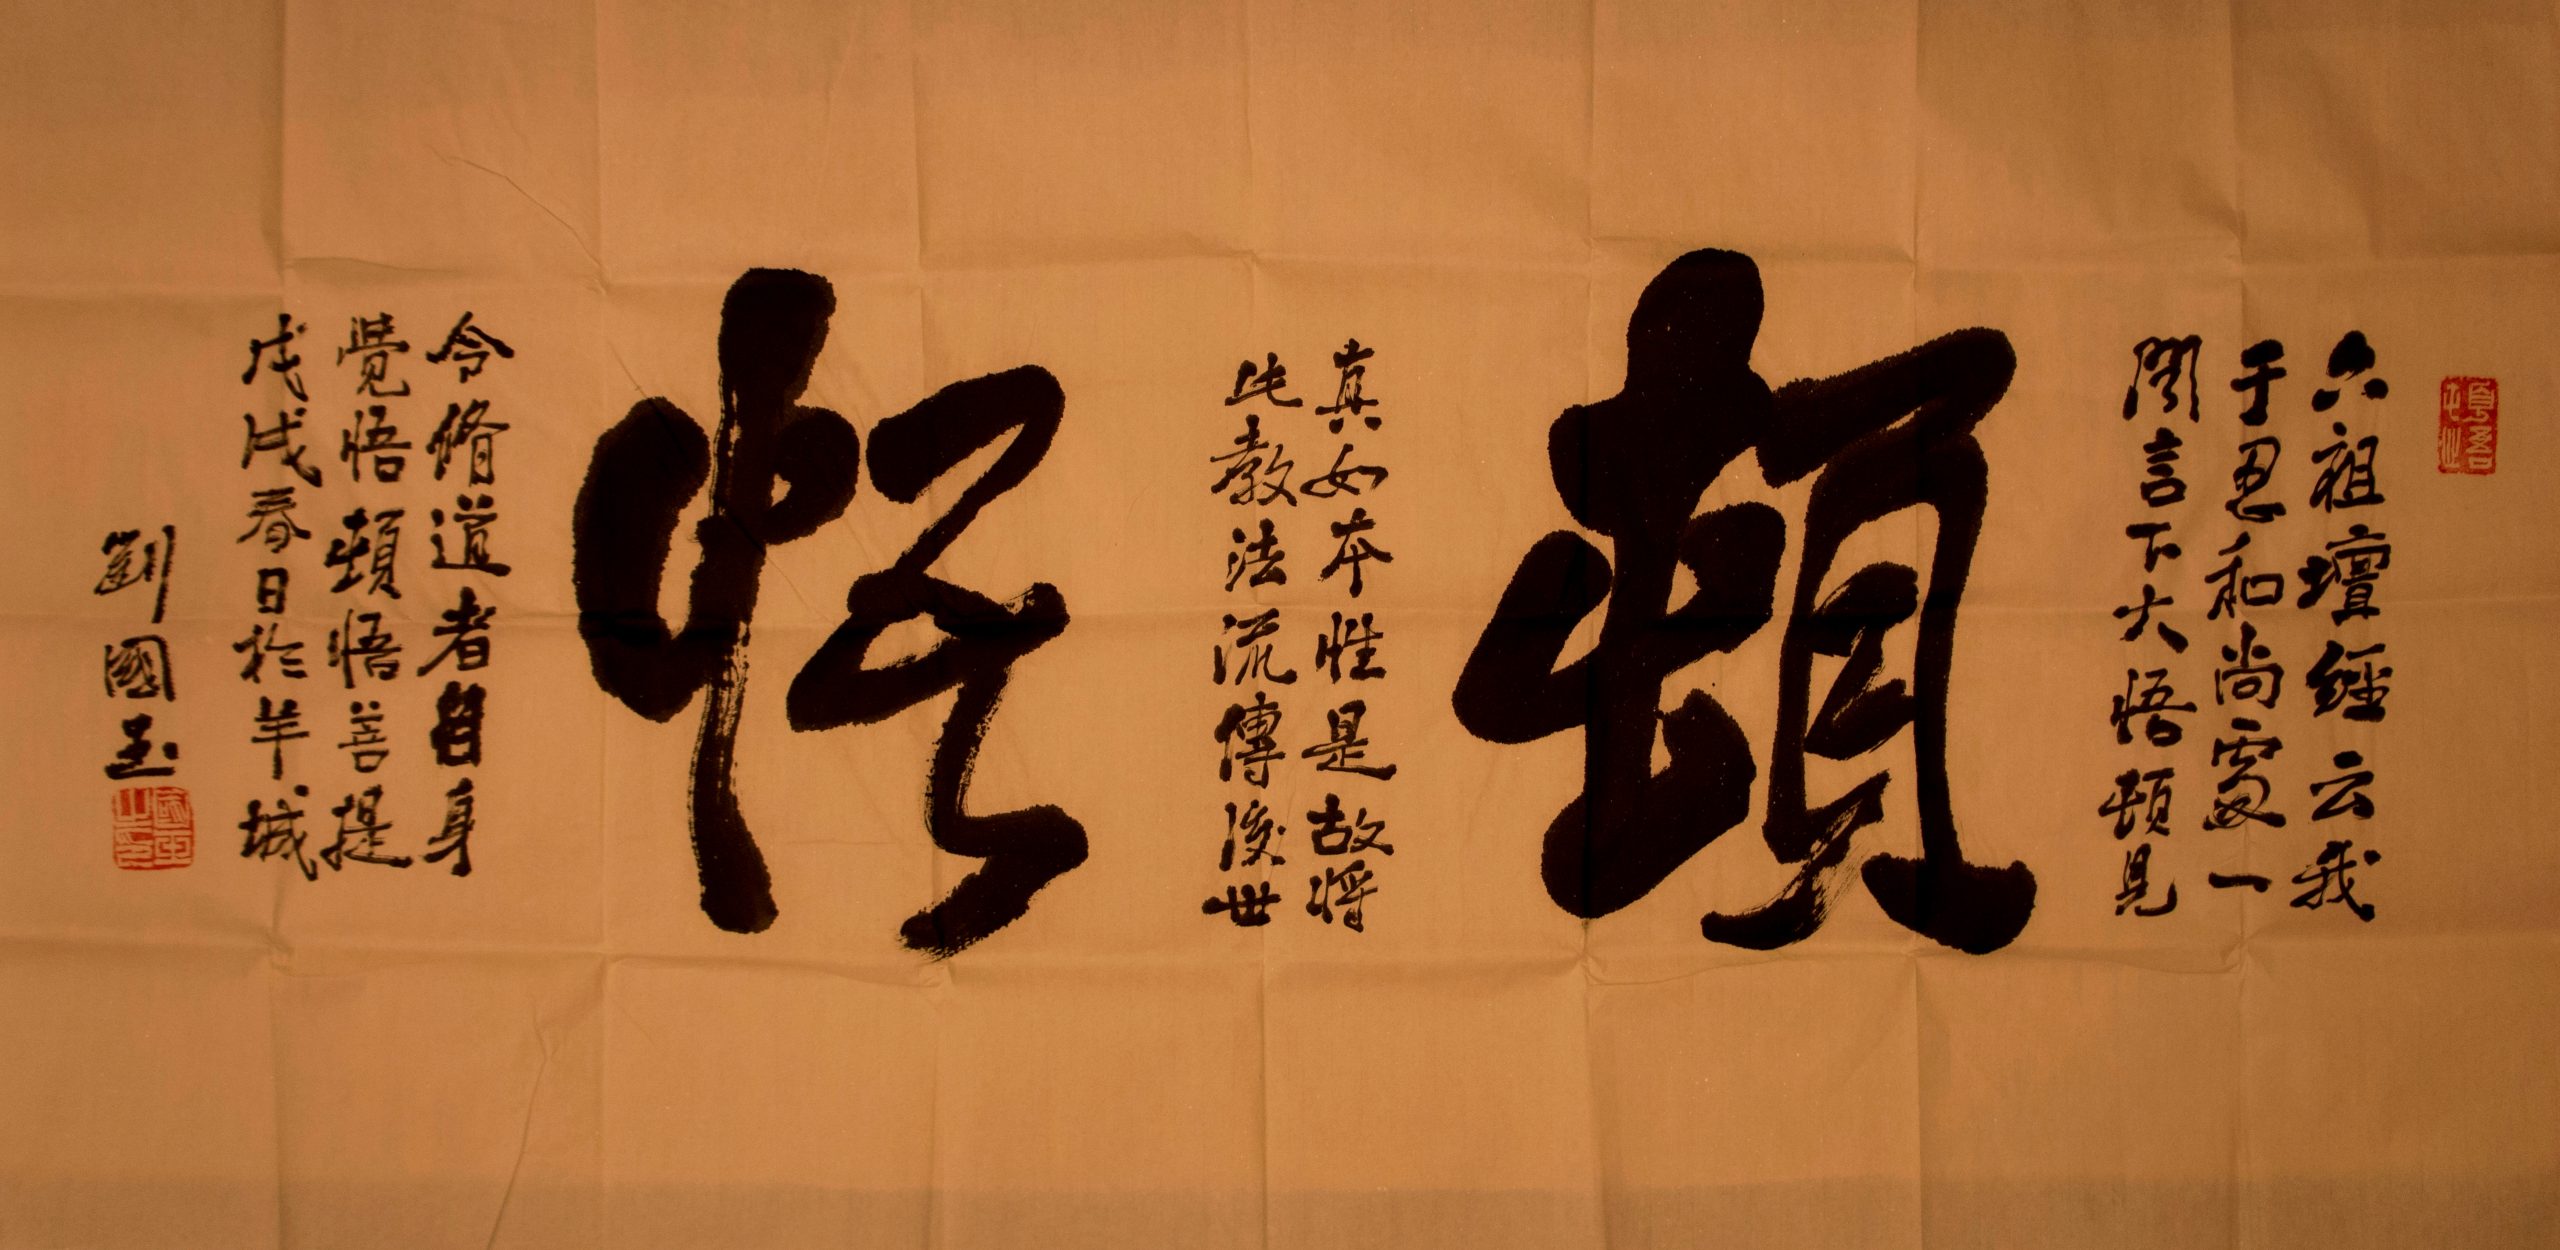 頓悟
六祖壇經云我
于忍和尚處一
聞言下大悟頓見
頓
真如本性是故將
此教法流傳後世
悟
令脩道者自身
覺悟頓悟菩提
戊戌春日於羊城
劉國玉
國玉之印